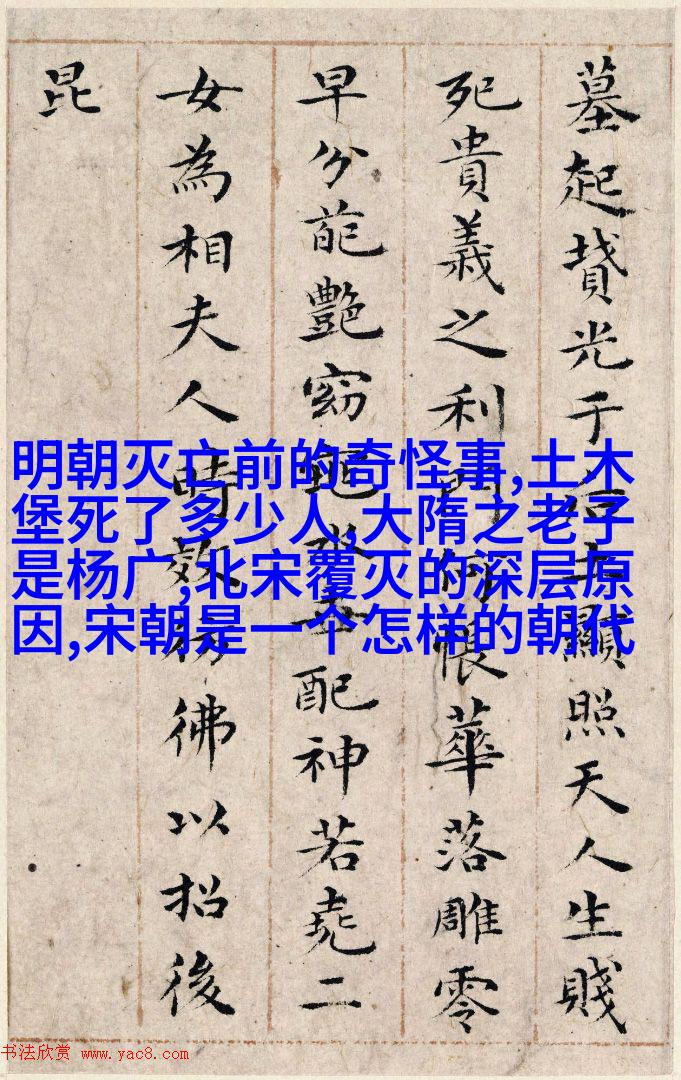 墓起墳光于后土顯照天人生賤
死貴義之利門何悵華落雕零
早分葩艷窈窕永世配神若堯二
女為相夫人時效彷彿以招後
昆
明朝灭亡前的奇怪事,土木
堡死了多少人,大隋之老子
是杨广,北宋覆灭的深层原
因,宋朝是一个怎样的朝代
书法欣赏 www.yac8.com